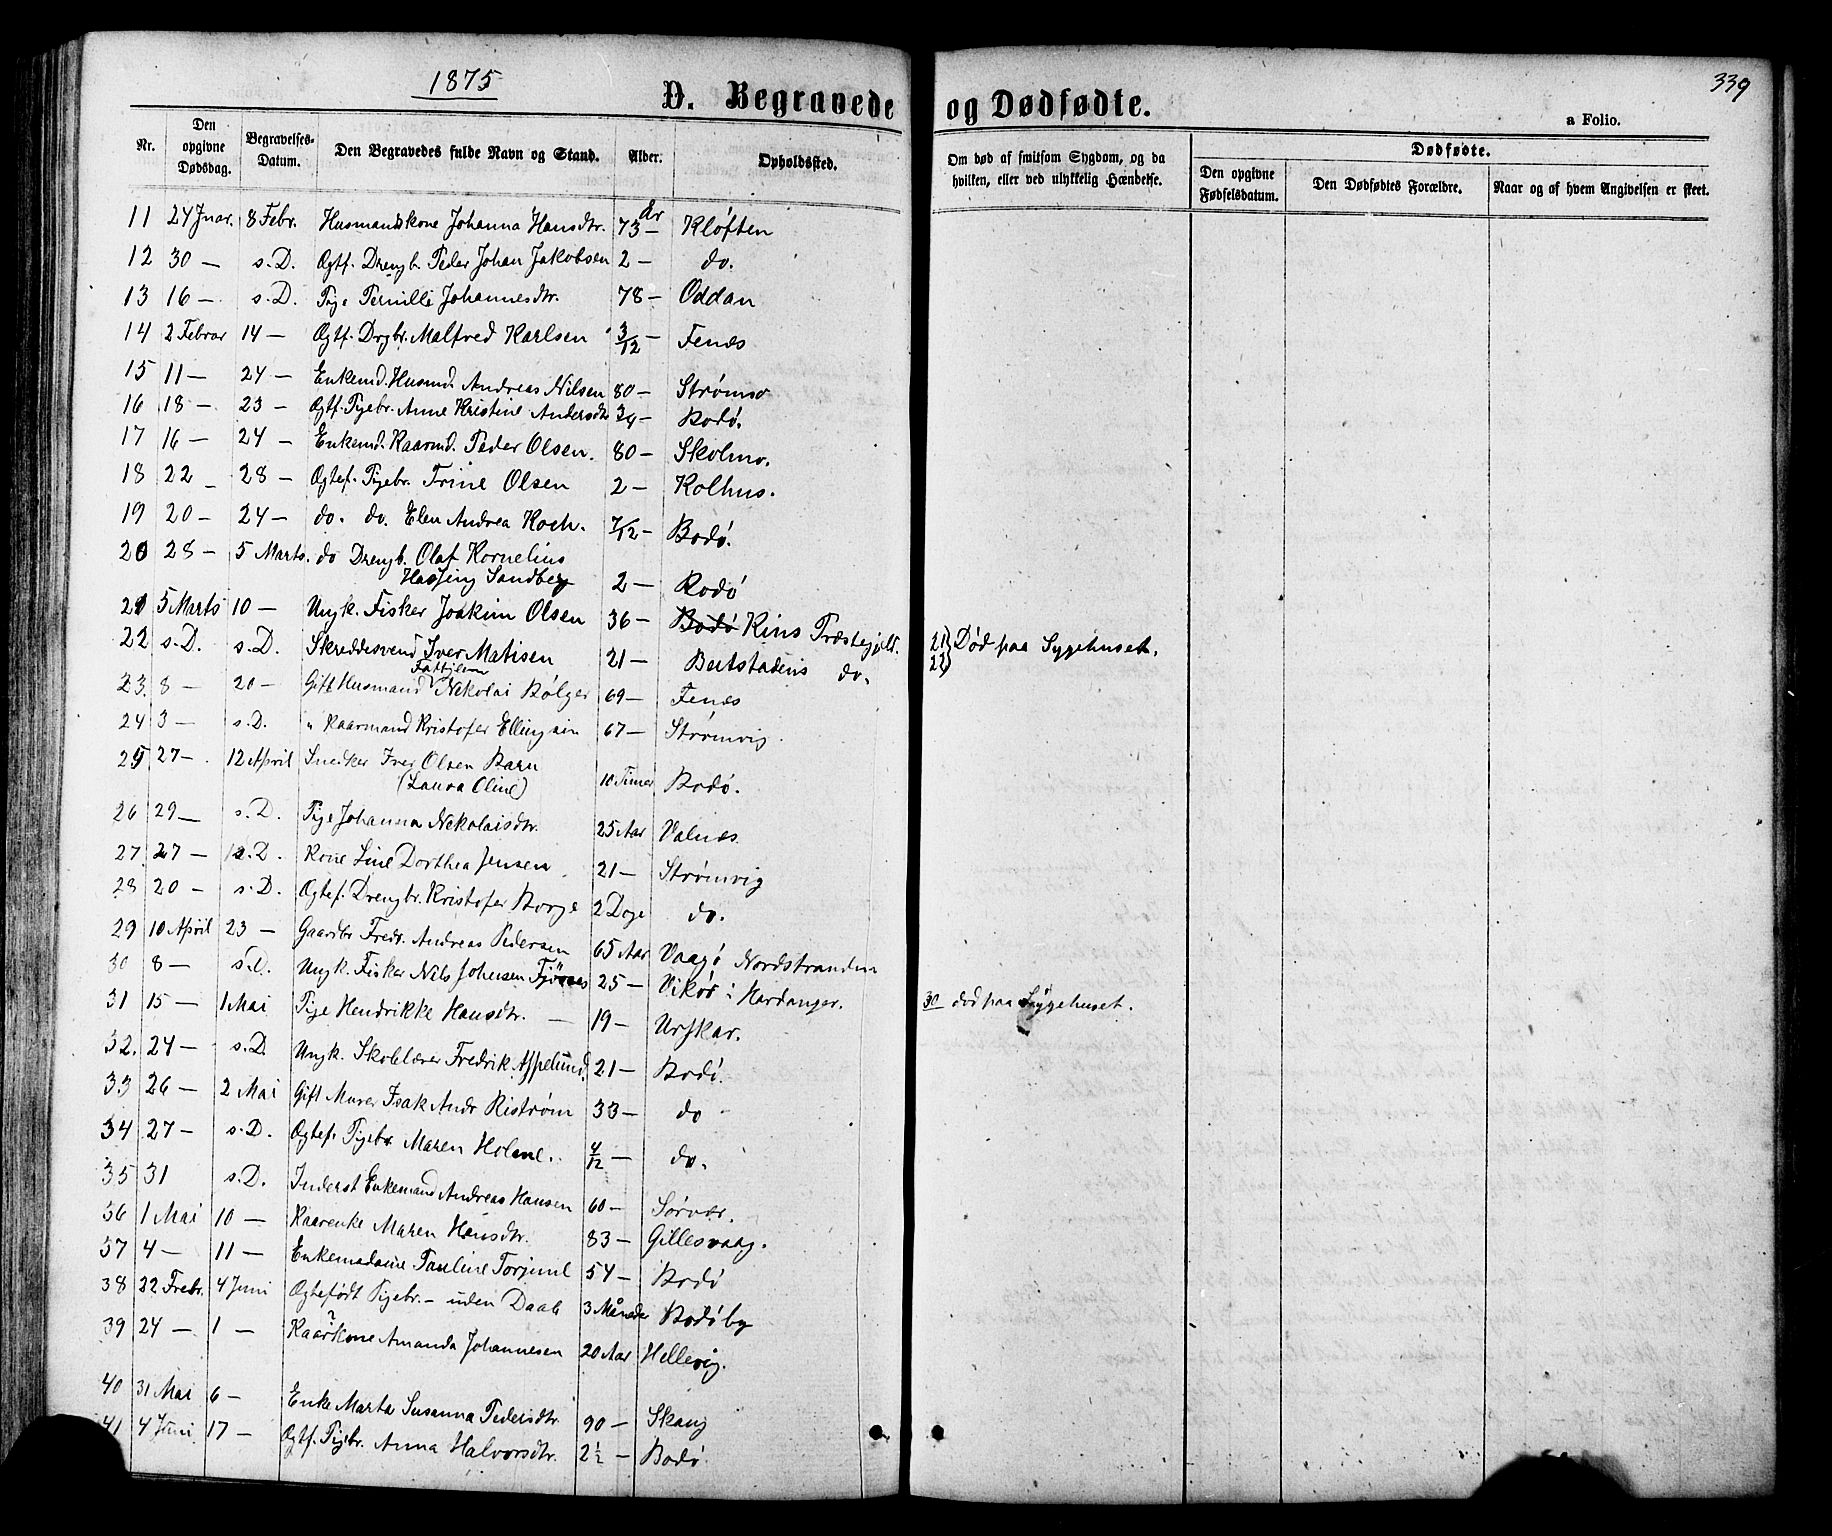 1875
D. Begravede og Dødfødte.
339
a Folio.
Nr.
Den opgivne Dødsdag.
Begravelses-Datum.
Den Begravedes fulde Navn og Stand.
Alder.
Opholdssted.
Om død af smitsom Sygdom, og da hvilken, eller ved ulykkelig Hændelse.
Dødfødte.
Den opgivne Fødselsdatum.
Den Dødfødtes Forældre.
Naar og af hvem Angivelsen er skeet.
11 24 Jnar. 8 Febr. Husmandskone Johanna Hansdtr. 73 År — Kløften
12 30 — s.D. Ogtf. Drengb. Peder Johan Jakobsen 2 — do.
13 16 — s.D. Pige Pernille Johannesdtr. 78 — Oddan
14 2 Febrar 14 — Ogtf. Drgbr. Malfred Karlsen 3/12 — Fenæs
15 11 — 24 — Enkemd. Husmd. Andreas Nilsen 80 — Strømsø
16 18 — 23 — Ogtf. Pigebr. Anne Kristine Andersdtr 3/4 — Bodø.
17 16 — 24 — Enkemd. Kaarmd. Peder Olsen. 80 — Skolmo.
18 22 — 28 — Ogtef. Pigebr. Trine Olsen 2 — Kolhus.
19 20 — 24 — do. do. Elen Andrea Koch. 7/12 — Bodø.
20 28 — 5 Marts. do Drengb. Olaf Kornelius
Hassing Sandberg 2 — Bodø
21 5 Marts 10 — Ungk. Fisker Joakim Olsen 36 — Bodø Rins Præstegjeld.
22 s.D. s.D. Skreddesvend Iver Matisen 21 — Beitstadens do. 21) 22) Død paa Sygehuset.
23. 8 — 20 — Gift Husmand Nekolai Bølger 69 — Fenæs
24 3 — s.D. " Kaarmand Kristofer Ellingsen 67 — Strømvig.
25 27 — 12 April Snedker Iver Olsen Barn
(Laura Oline) 10 Timer Bodø.
26 29 — s.D. Pige Johanna Nekolaisdtr. 25 Aar Valnæs.
27 27 — s.D. Kone Line Dorthea Jensen. 21 — Strømvig
28 20 — s.D. Ogtef. Drengbr. Kristofer Borge 2 Dage do.
29 10 April 23 — Gaardbr Fredr. Andreas Pedersen 65 Aar Vaagø Nordstranden
30 8 — s.D. Ungk. Fisker Nils Johensen 25 — Vikør i Hardanger. 30 død paa Sygehuset.
31 15 — 1 Mai Pige Hendrikke Hansdtr. — 19 — Urskar.
32. 24 — s.D. Ungk. Skolelærer Fredrik Aspelund. 21 — Bodø.
33 26 — 2 Mai Gift Murer Isak Andr Riström 33 — do
34 27 — s.D. Ogtef. Pigebr Maren Holme. 4/12 — do.
35 31 s.D. Inderst Enkemand Andreas Hansen 60 — Sørvær.
36 1 Mai 10 — Kaarenke Maren Hansdtr. 83 — Gillesvaag.
37 4 — 11 — Enkemadame Pauline 54 — Bodø
38 22 Febr. 4 Juni Ogtefødt Pigebr. — uden Daab 3 Måneder Bodøby
39 24 — 1 — Kaarkone Amanda Johannesen 20 Aar Hellevig.
40 31 Mai 6 — Enke Marta Susanna Pedersdtr. 90 — Skaug
41 4 Juni 17 — Ogtf. Pigebr. Anna Halvorsdtr. 2½ — Bodø.